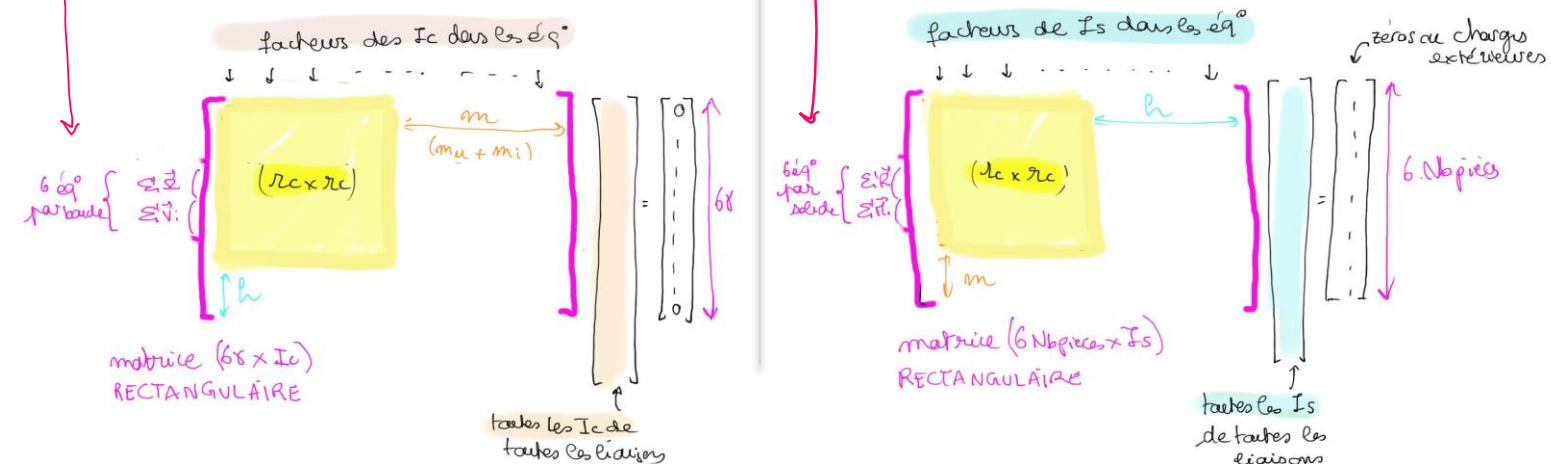 facteurs des Ic dans les éq°
m
(mu + mi)
6 éq°
par boucle
(rc x rc)
=
0
0
6γ
h
matrice (6γ x Ic)
RECTANGULAIRE
toutes les Ic de
toutes les liaisons
facteurs de Is dans les éq°
zéros ou charges
extérieures
h
6 éq°
par
solide
(rc x rc)
=
6.Nbpièces
m
matrice (6 Nbpieces x Is)
RECTANGULAIRE
toutes les Is
de toutes les
liaisons